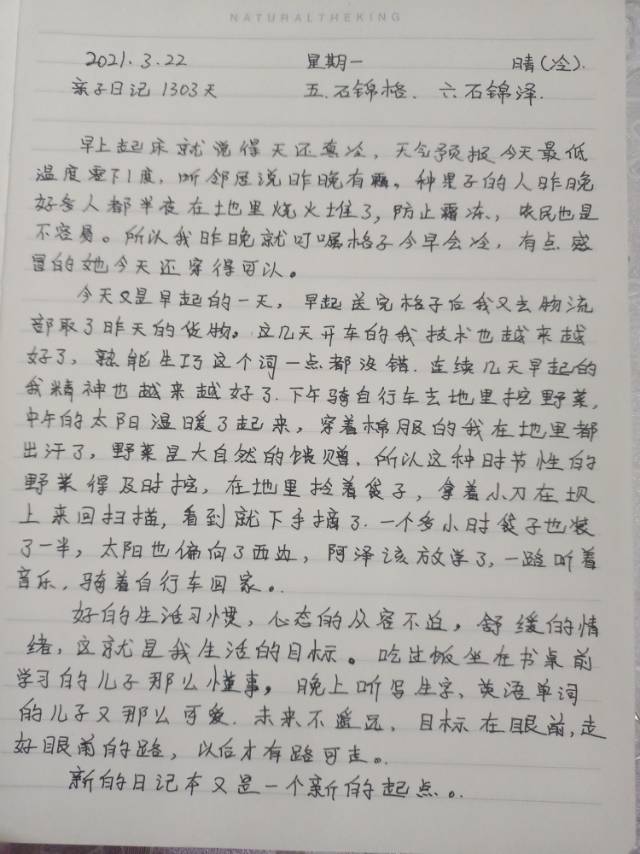 NATURALTHEKING
2021.3.22 星期一 晴(冷).
亲子日记 1303天 五.石锦格. 六石锦泽.
早上起床就说得天还真冷,天气预报今天最低
温度零下1度,听邻居说昨晚有霜。种果子的人昨晚
好多人都半夜在地里烧火堆了,防止霜冻,农民也是
不容易。所以我昨晚就叮嘱格子今早会冷,有点感
冒的她今天还穿得可以。
今天又是早起的一天,早起送完格子后我又去物流
部取了昨天的货物。这几天开车的我技术也越来越
好了,熟能生巧这个词一点都没错.连续几天早起的
我精神也越来越好了.下午骑自行车去地里挖野菜,
中午的太阳温暖了起来,穿着棉服的我在地里都
出汗了,野菜是大自然的馈赠.所以这种时节性的
野菜得及时挖,在地里拎着袋子,拿着小刀在坝
上来回扫描,看到就下手摘了.一个多小时袋子也装
了一半,太阳也偏向了西边,阿泽该放学了,一路听着
音乐.骑着自行车回家。
好的生活习惯,心态的从容不迫,舒缓的情
绪,这就是我生活的目标。吃过饭坐在书桌前
学习的儿子那么懂事,晚上听写生字、英语单词
的儿子又那么可爱.未来不遥远.目标在眼前,走
好眼前的路,以后才有路可走。
新的日记本又是一个新的起点。